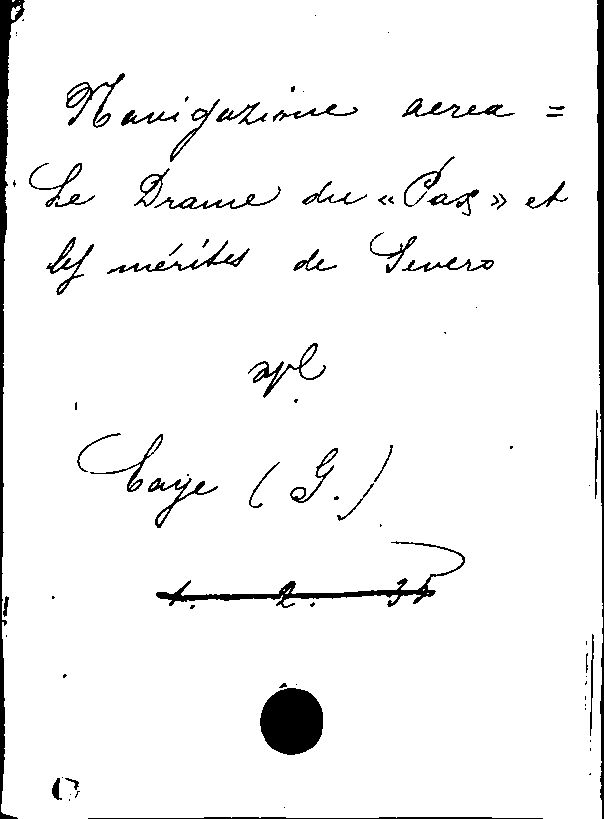 Navigazione aerea =
Le Drame du « Pax » et
les mérites de Severo
Caye (G.)
1. 2. 35